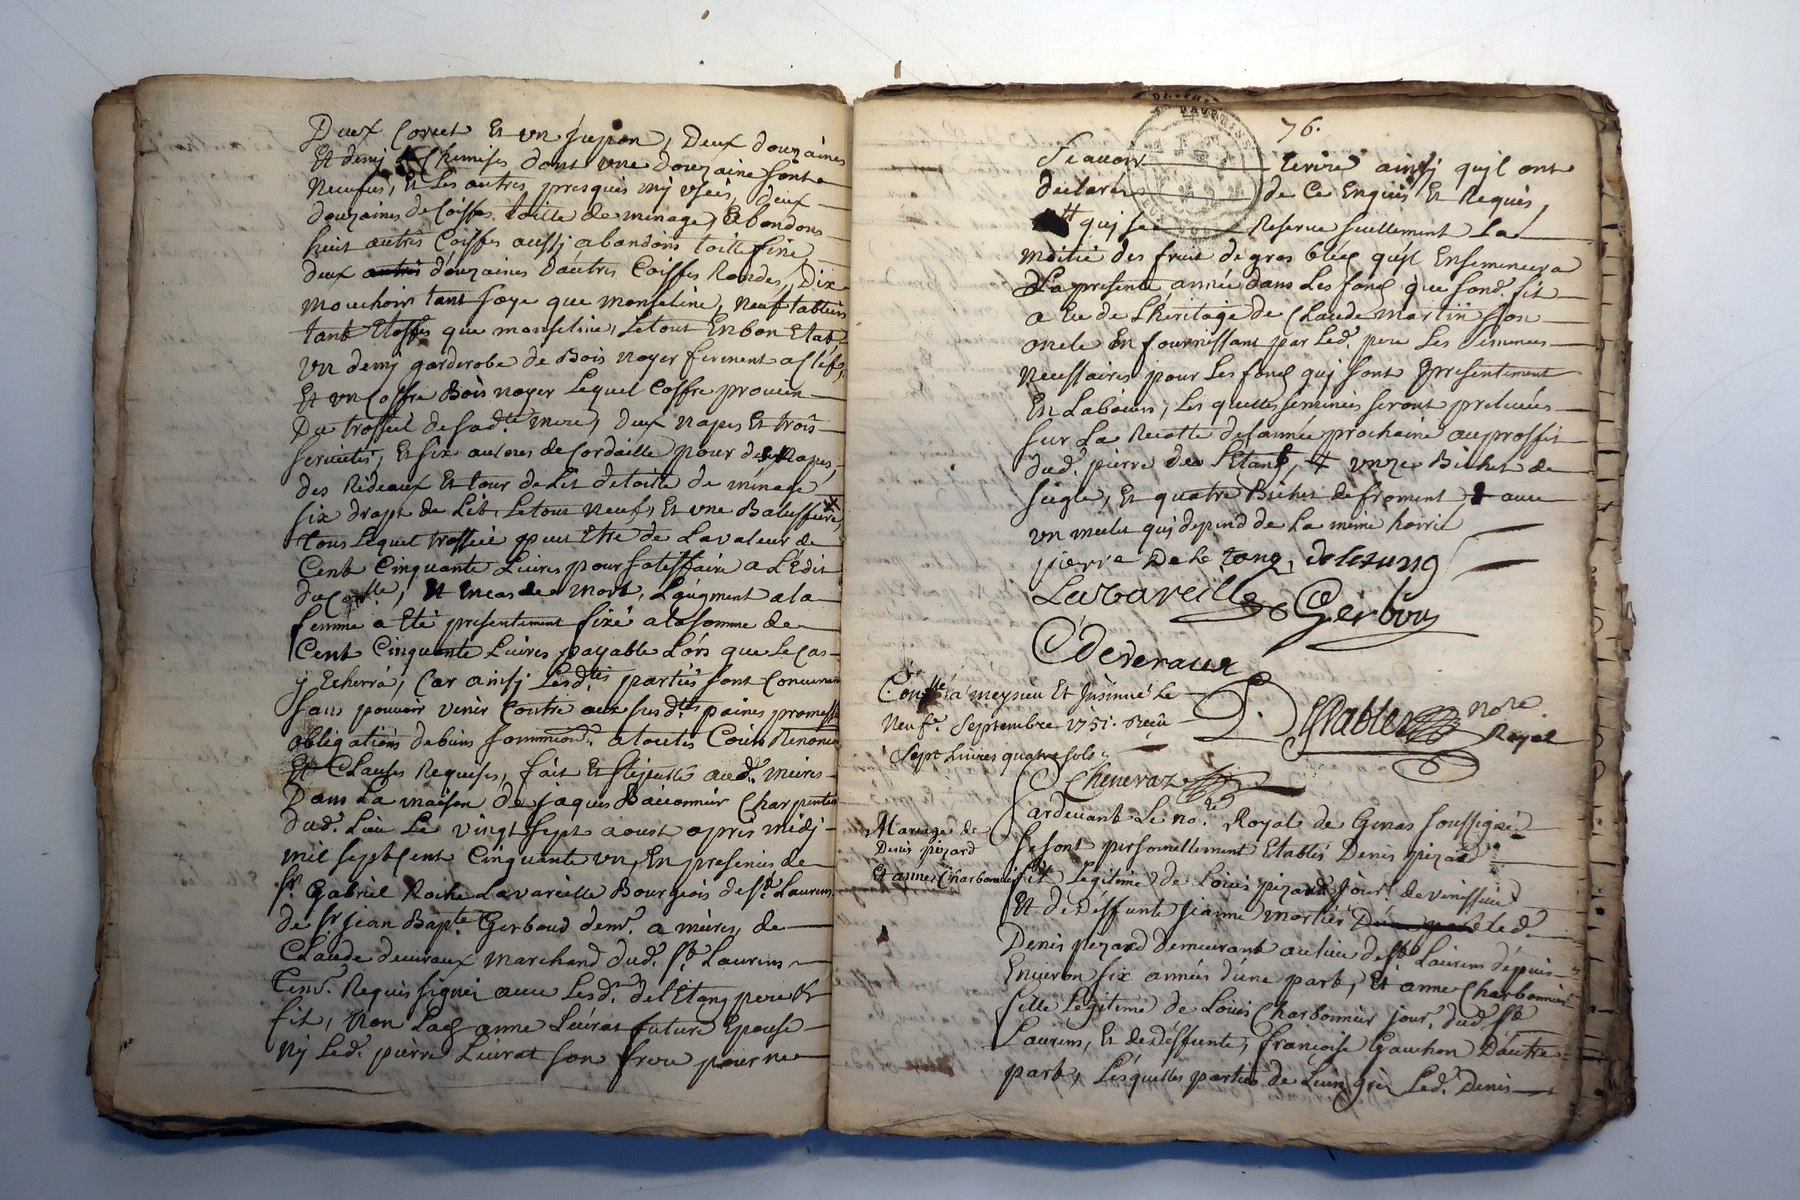 Deux Corcet Et un Jupon, Deux douzaines
Et demy Chemises dont une douzaine sont
Neufves, Et Les autres presques my usées, deux
douzaines de Coiffe toille de menage, Et bandons
huit autres Coiffes aussy abandons toille fine
deux autres douzaines d'autres Coiffes Rondes, Dix
mouchoirs tant soye que monseline, Neuf tabliers
tant Etoffes que monseline, Le tout En bon Etat
un demy garderobe de Bois noyer ferment a Clefs,
Et un Coffre Bois noyer Lequel Coffre provien
Du trosseil de sad.te mere, Deux napes Et trois
serviettes, Et six aulnes de Cordaille pour des Napes,
des Rideaux Et tour de Lit de toille de ménage
six draps de Lit, Le tout neuf, Et une
tous Lequel trossel peut Etre de La valeur de
Cent Cinquante Livres pour satisffaire a L'Edit
du Con.lle, Et En cas de mort, L'augment a la
femme a Eté presentement fixé a la somme de
Cent Cinquante Livres payable Lors que Le Cas
y Echerrá, Car ainsy Lesd.tes parties sont Convenues
sans pouvoir venir Contre aux susd.tes paines promesses
obligations de biens soummions.. a toutes Cours Renonces
Et Clauses Requises, fait Et aud. meires
Dans La maison de Jaques Charpentier
dud. Lieu Le vingt sept aoust apres midy
mil sept Cent Cinquante un, En presences de
S.r Gabriel Roche Lavareille Bourgeois de S.t Laurens
de S.r Jean Bap.te Gerboud dem.t a meires, de
Claude deveraux marchand dud. S.t Laurens
Tem. Requis signés avec Lesd. de L'Etang pere Et
fit, Non Lad. anne Liérat future Epouse
Ny Led. pierre Liérat son frere pour ne
76.
Scavoir Ecrire ainsy qu'il ont
declaré de Ce Enquis Et Requis,
quy se Reserve seullement La
moitié des fruit de gros bléez qu'il Ensemencera
La presente année dans Les fonds que sond. fit
a Eu de L'heritage de Claude martin son
oncle En fournissant par Led. pere Les semences
necessaires pour Les fonds quy sont presentement
En Labours, Les quelles semences seront prelevées
sur La Recolte de L'année prochaine au proffit
dud. pierre de L'Etang, & unze Bichet de
siegle, Et quatre Bichet de froment, & avec
un mulet quy depend de La meme hoirie
pierre De le tang, deletang
Lavareille Gerboud
C deveraux
Con.llé a meyzieu Et Insinué Le
Neuf.e Septembre 1751. Reçu
Sept Livres quatre sols
Cheneraz
D. Not.re
Royal
Mariage de
Denis pizard
Et anne Charbonnier
Pardevant Le no.re Royal de Genas soussigné
se sont personnellement Etablis Denis pizard
fit Legitime de Loüis pizard Jour. de venissieu
Et de Deffunte Jeanne mortier Led.
Denis pizard demeurant au lieu de S.t Laurens depuis
Environ six années d'une part, Et anne Charbonnier
fille Legitime de Loüis Charbonnier jour. dud. S.t
Laurens, Et de Deffunte, françoise Gauchon D'autre
part, Lesquelles parties de Leur gré Led. Denis